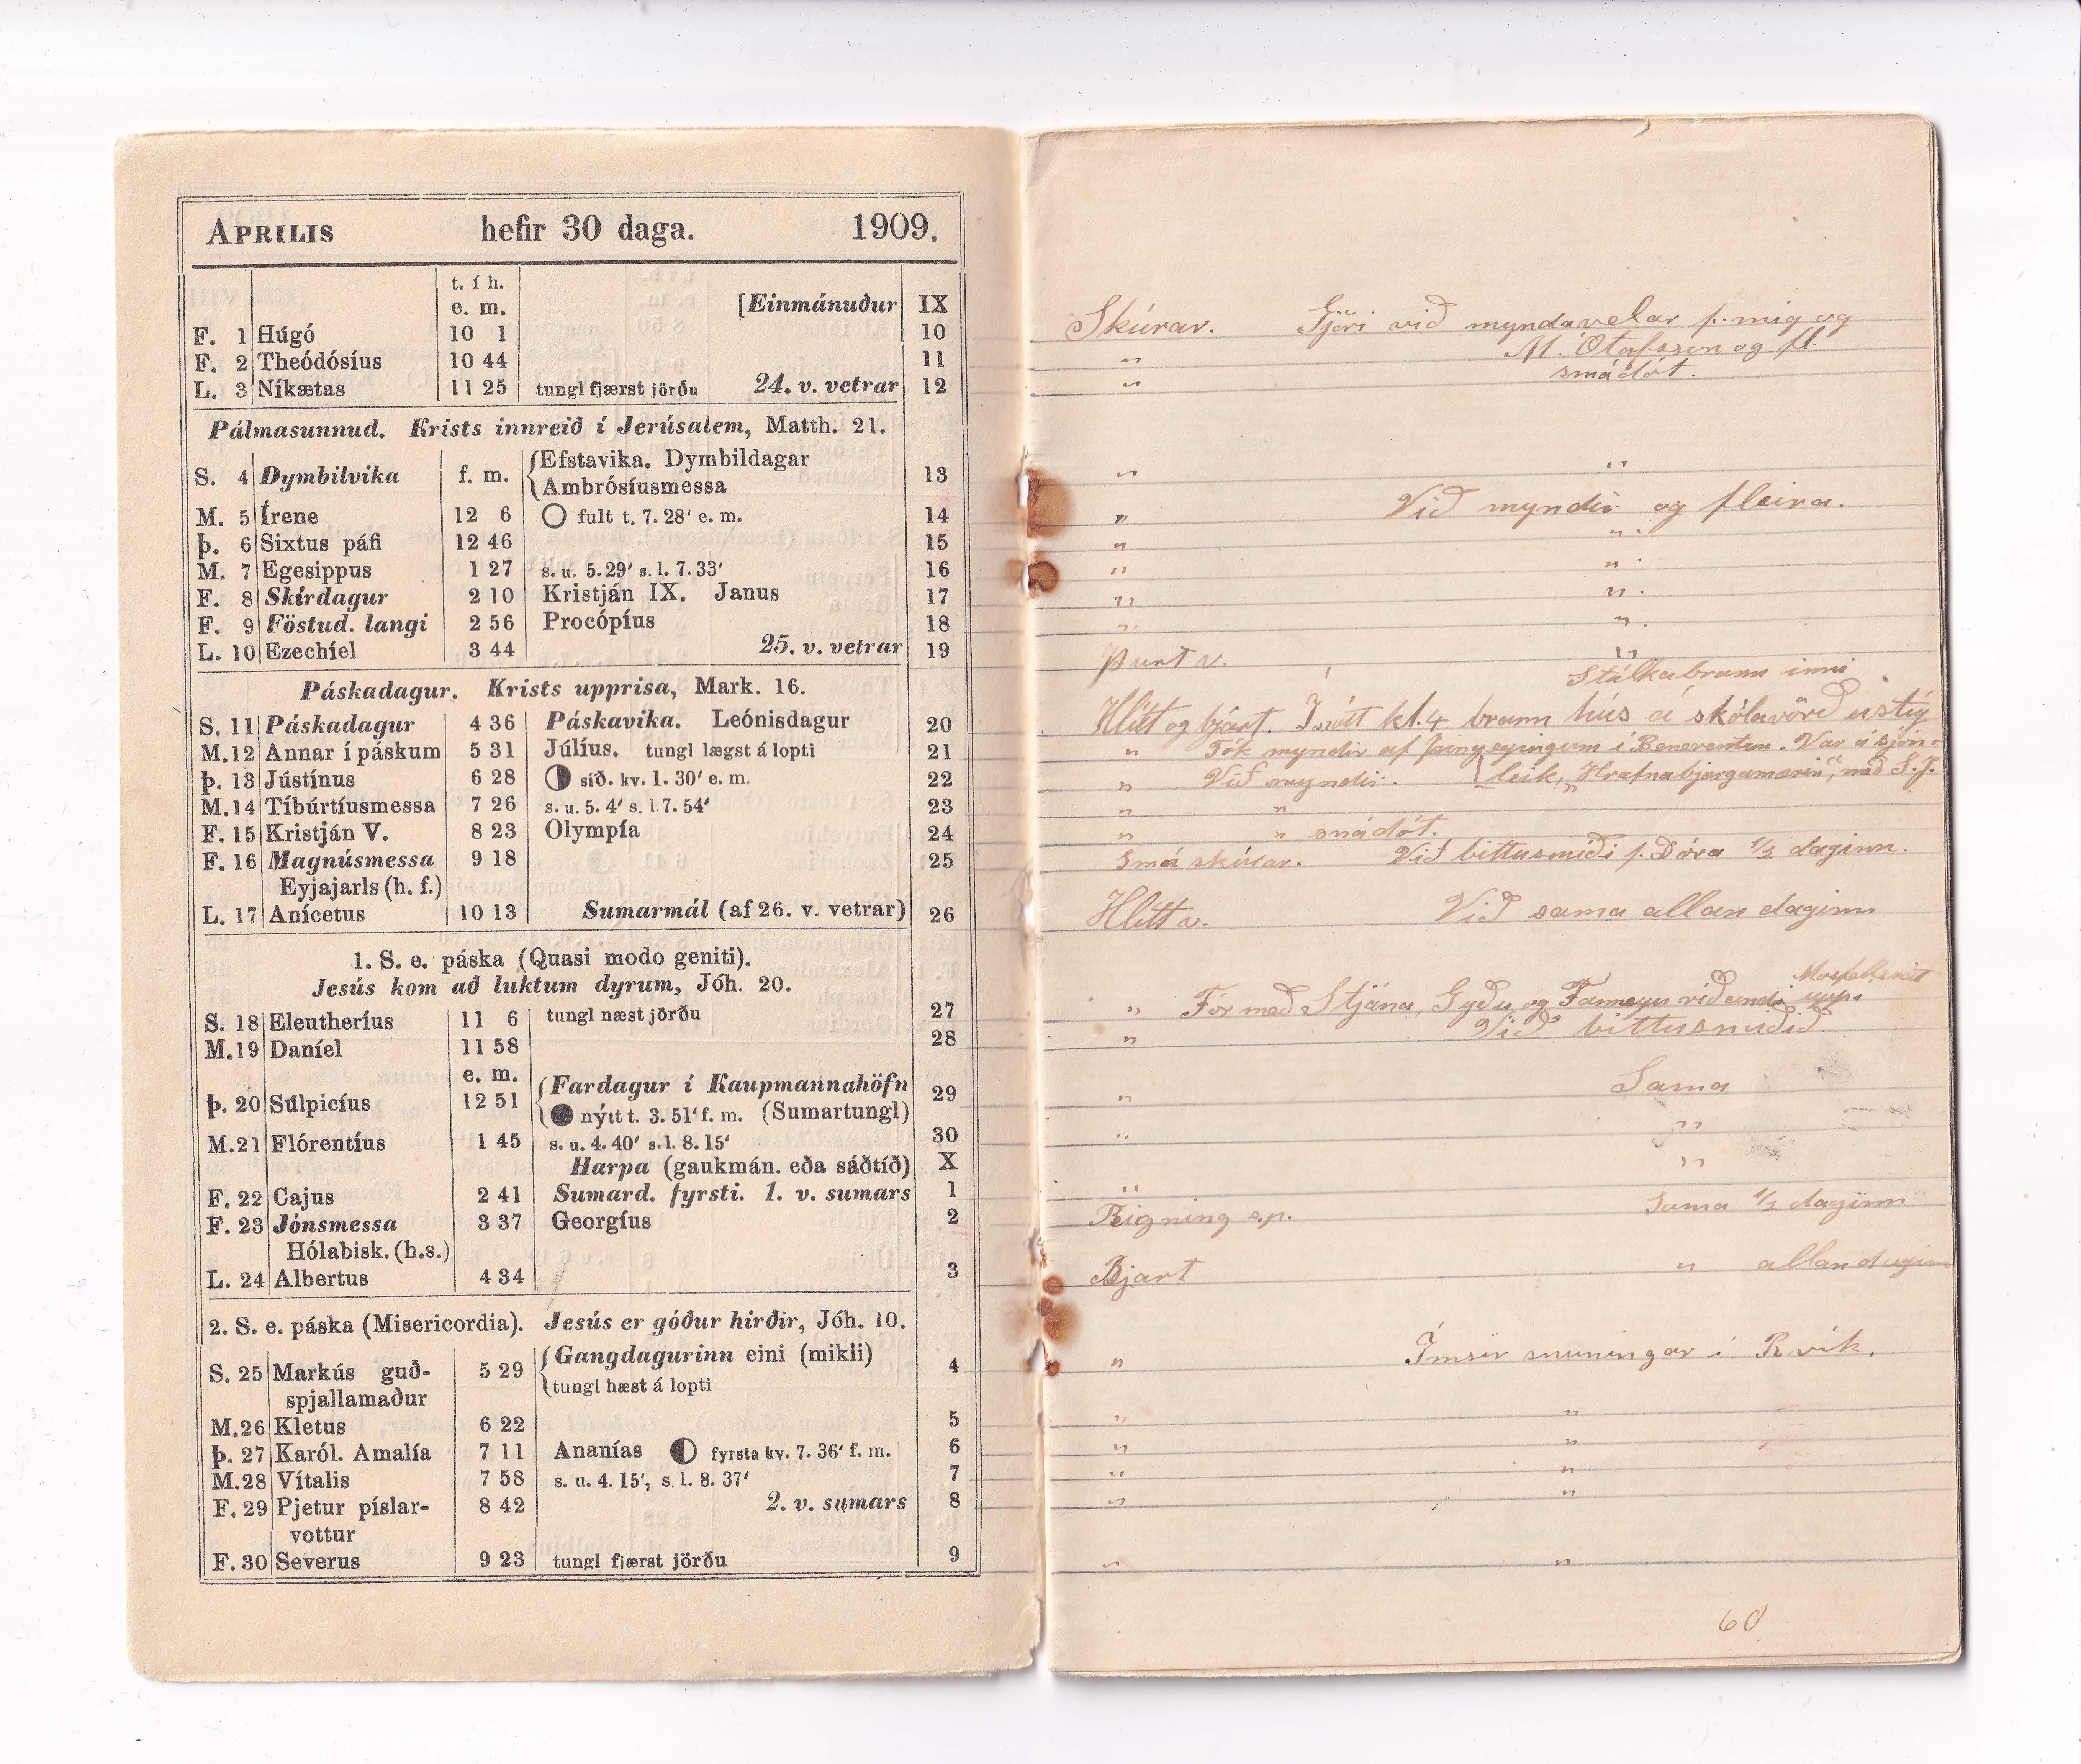 APRILIS hefir 30 daga. 1909.
t. í h.
e. m. [Einmánuður IX
F. 1 Húgó 10 1 10
F. 2 Theódósíus 10 44 11
L. 3 Níkætas 11 25 tungl fjærst jörðu 24. v. vetrar 12
Pálmasunnud. Krists innreið í Jerúsalem, Matth. 21.
S. 4 Dymbilvika f. m. Efstavika. Dymbildagar 13
Ambrósíusmessa
M. 5 Írene 12 6 fult t. 7. 28' e. m. 14
Þ. 6 Sixtus páfi 12 46 15
M. 7 Egesippus 1 27 s. u. 5. 29' s. l. 7. 33' 16
F. 8 Skírdagur 2 10 Kristján IX. Janus 17
F. 9 Föstud. langi 2 56 Procópíus 18
L. 10 Ezechíel 3 44 25. v. vetrar 19
Páskadagur. Krists upprisa, Mark. 16.
S. 11 Páskadagur 4 36 Páskavika. Leónisdagur 20
M. 12 Annar í páskum 5 31 Júlíus. tungl lægst á lopti 21
Þ. 13 Jústínus 6 28 síð. kv. 1. 30' e. m. 22
M. 14 Tíbúrtíusmessa 7 26 s. u. 5. 4' s. l. 7. 54' 23
F. 15 Kristján V. 8 23 Olympía 24
F. 16 Magnúsmessa 9 18 25
Eyjajarls (h. f.)
L. 17 Anícetus 10 13 Sumarmál (af 26. v. vetrar) 26
1. S. e. páska (Quasi modo geniti).
Jesús kom að luktum dyrum, Jóh. 20.
S. 18 Eleutheríus 11 6 tungl næst jörðu 27
M. 19 Daníel 11 58 28
e. m. Fardagur í Kaupmannahöfn
Þ. 20 Súlpicíus 12 51 nýtt t. 3. 51' f. m. (Sumartungl) 29
M. 21 Flórentíus 1 45 s. u. 4. 40' s. l. 8. 15' 30
Harpa (gaukmán. eða sáðtíð) X
F. 22 Cajus 2 41 Sumard. fyrsti. 1. v. sumars 1
F. 23 Jónsmessa 3 37 Georgíus 2
Hólabisk. (h. s.)
L. 24 Albertus 4 34 3
2. S. e. páska (Misericordia). Jesús er góður hirðir, Jóh. 10.
S. 25 Markús guð- 5 29 Gangdagurinn eini (mikli) 4
spjallamaður tungl hæst á lopti
M. 26 Kletus 6 22 5
Þ. 27 Karól. Amalía 7 11 Ananías fyrsta kv. 7. 36' f. m. 6
M. 28 Vítalis 7 58 s. u. 4. 15', s. l. 8. 37' 7
F. 29 Pjetur píslar- 8 42 2. v. sumars 8
vottur
F. 30 Severus 9 23 tungl fjærst jörðu 9
Skúrar. Gjöri við myndavelar f. mig og
" M. Ólafsson og fl.
" smádót.
" "
" Við myndir og fleira.
" "
" "
" "
" "
Þurt v. "
brann inni
Hlítt og bjart. Í nótt kl. 4 brann hús á skólavörðustíg
" Tók myndir af þingeyingum í Beneventum. Var á sjón-
" Við myndir. [leik, „Hrafnabjargamærin", með S. J.
" "
" " smádót.
Smá skúrar. Við bittusmíði f. Dóra 1/2 daginn.
Hlítt v. Við sama allan daginn
Mosfellssveit
" Fór með Stjána, Gyðu og Fanneyu við anda upp.
" Við bittusmíðið.
" Sama
" "
"
" 
Rigning s.p. Sama 1/2 daginn
Bjart " allan daginn
" Ímsir snuningar í Rvík.
" "
" "
" "
" "
" "
60